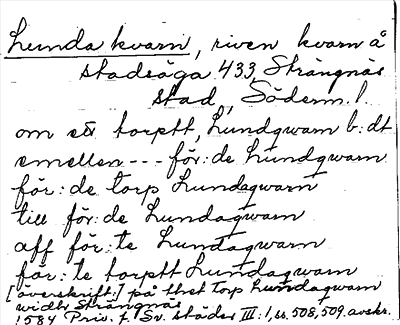 Lunda kvarn, riven kvarn å
stadsäga 433, Strängnäs
stad, Söderm. l.
om ett torptt, Lundqwarn b:dt
emellen --- för:de Lundqwarn
för:de torp Lundaqwarn
till för:de Lundaqwarn
aff för:te Lundaqwarn
för:te torptt Lundaqwarn
[överskrift:] på thet torp Lundaqwarn
widh Strängnäs
1584 Priv. f. Sv. städer III:1, ss. 508, 509. avskr.